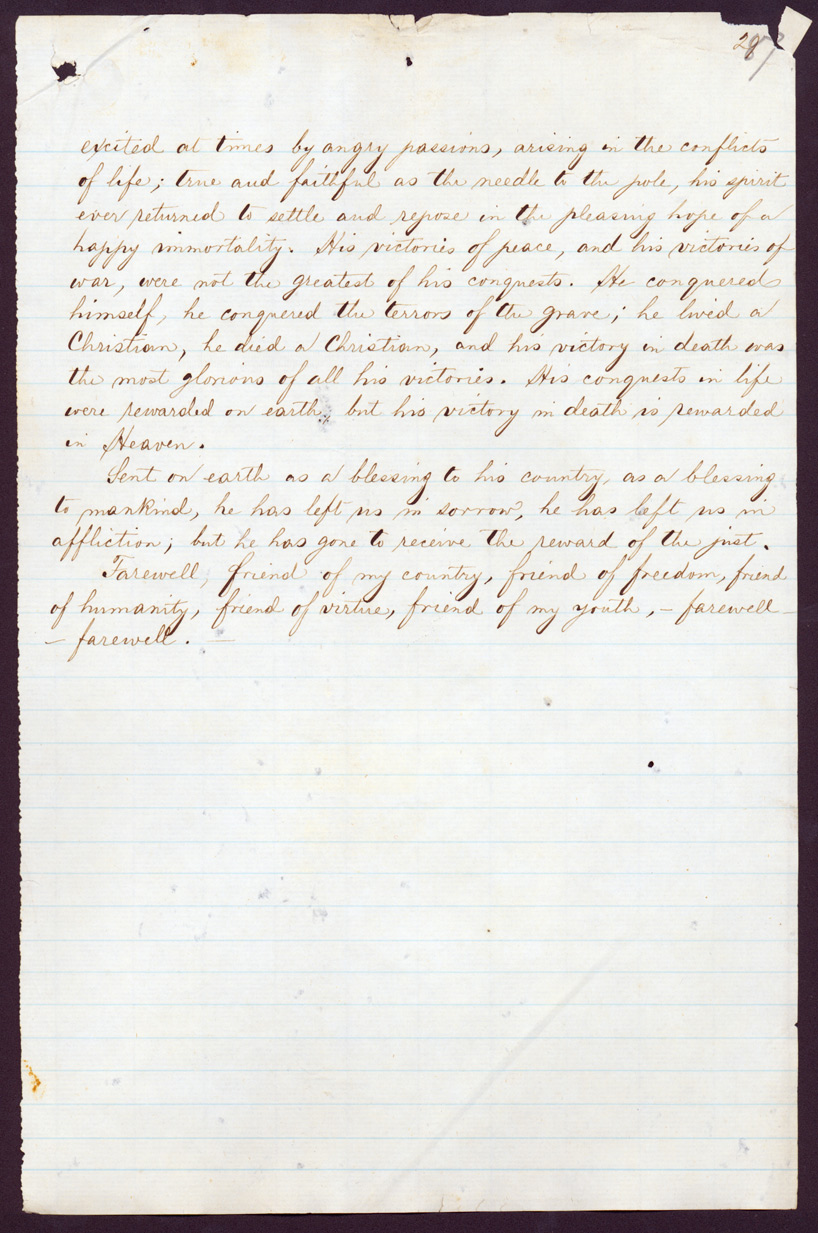 287
excited at times by angry passions, arising in the conflicts
of life; true and faithful as the needle to the pole, his spirit
ever returned to settle and repose in the pleasing hope of a
happy immortality. His victories of peace, and his victories of
war, were not the greatest of his conquests. He conquered
himself, he conquered the terrors of the grave; he lived a
Christian, he died a Christian, and his victory in death was
the most glorious of all his victories. His conquests in life
were rewarded on earth, but his victory in death is rewarded
in Heaven.
Sent on earth as a blessing to his country, as a blessing
to mankind, he has left us in sorrow, he has left us in
affliction; but he has gone to receive the reward of the just.
Farewell, friend of my country, friend of freedom, friend
of humanity, friend of virtue, friend of my youth, – farewell –
– farewell. —